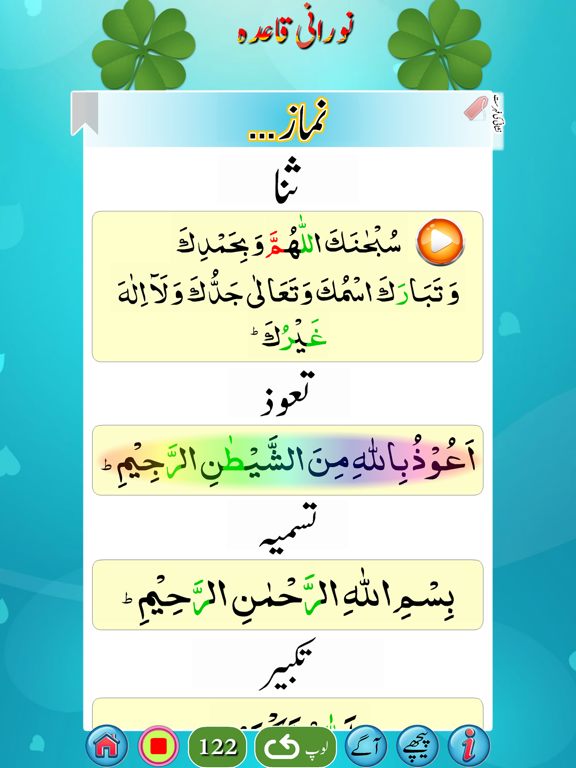 نورانی قاعدہ
نماز...
ثنا
سُبْحٰنَكَ اللّٰهُمَّ وَ بِحَمْدِكَ
وَ تَبَارَكَ اسْمُكَ وَ تَعَالٰی جَدُّكَ وَ لَآ اِلٰهَ
غَیْرُكَ ؕ
تعوذ
اَعُوْذُ بِاللّٰهِ مِنَ الشَّیْطٰنِ الرَّجِیْمِ ؕ
تسمیہ
بِسْمِ اللّٰهِ الرَّحْمٰنِ الرَّحِیْمِ ؕ
تکبیر
122
لوپ
آگے
پیچھے
i